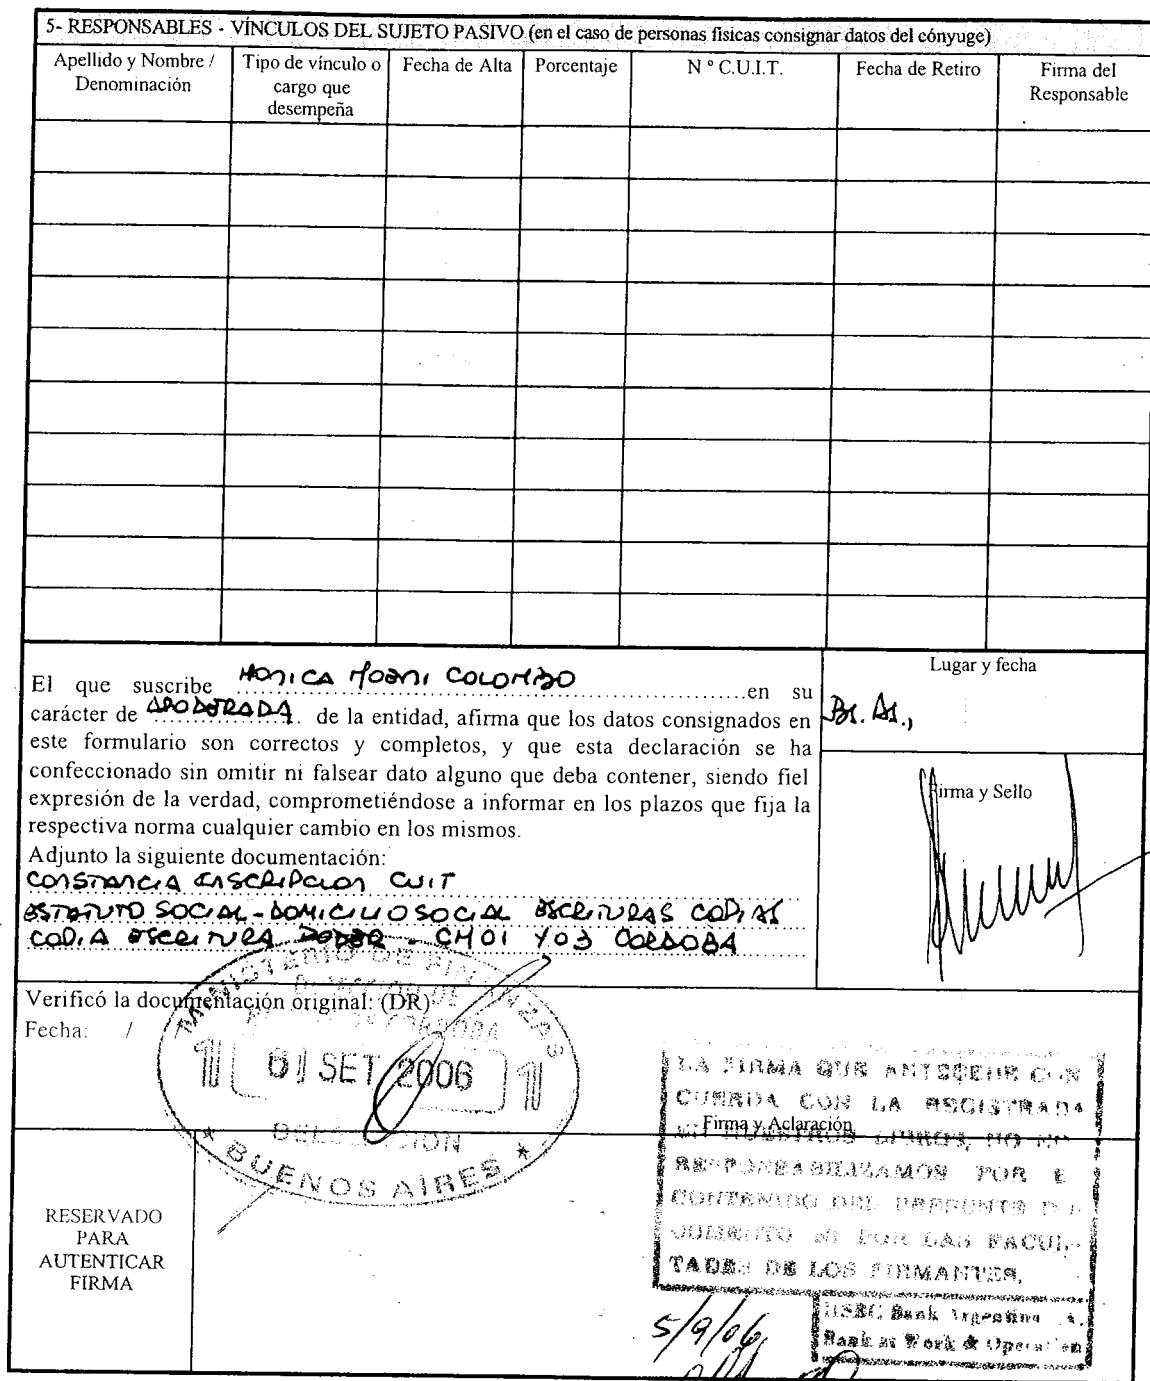 5- RESPONSABLES - VÍNCULOS DEL SUJETO PASIVO (en el caso de personas fisicas consignar datos del cónyuge)
Apellido y Nombre / Denominación
Tipo de vínculo o cargo que desempeña
Fecha de Alta
Porcentaje
N º C.U.I.T.
Fecha de Retiro
Firma del Responsable
El que suscribe MONICA NOEMI COLOMBO en su
carácter de APODERADA de la entidad, afirma que los datos consignados en
este formulario son correctos y completos, y que esta declaración se ha
confeccionado sin omitir ni falsear dato alguno que deba contener, siendo fiel
expresión de la verdad, comprometiéndose a informar en los plazos que fija la
respectiva norma cualquier cambio en los mismos.
Adjunto la siguiente documentación:
CONSTANCIA INSCRIPCION CUIT
ESTATUTO SOCIAL - DOMICILIO SOCIAL ESCRITURAS COPIAS
COPIA ESCRITURA PODER - CM01 Y 03 CORDOBA
Lugar y fecha
Bs. As.,
Firma y Sello
Verificó la documentación original: (DR)
Fecha: /
MINISTERIO DE FINANZAS
DIRECCION DE
CORDOBA
1 01 SET 2006 1
DELEGACION
* BUENOS AIRES *
Firma y Aclaración
RESERVADO
PARA
AUTENTICAR
FIRMA
LA FIRMA QUE ANTECEDE CON
CUERDA CON LA REGISTRADA
EN NUESTROS LIBROS, NO NO
RESPONSABILIZAMOS POR E
CONTENIDO DEL PRESENTE DO
CUMENTO NI POR LAS FACUL-
TADES DE LOS FIRMANTES.
HSBC Bank Argentina A.
Bank at Work & Operation
5/9/06